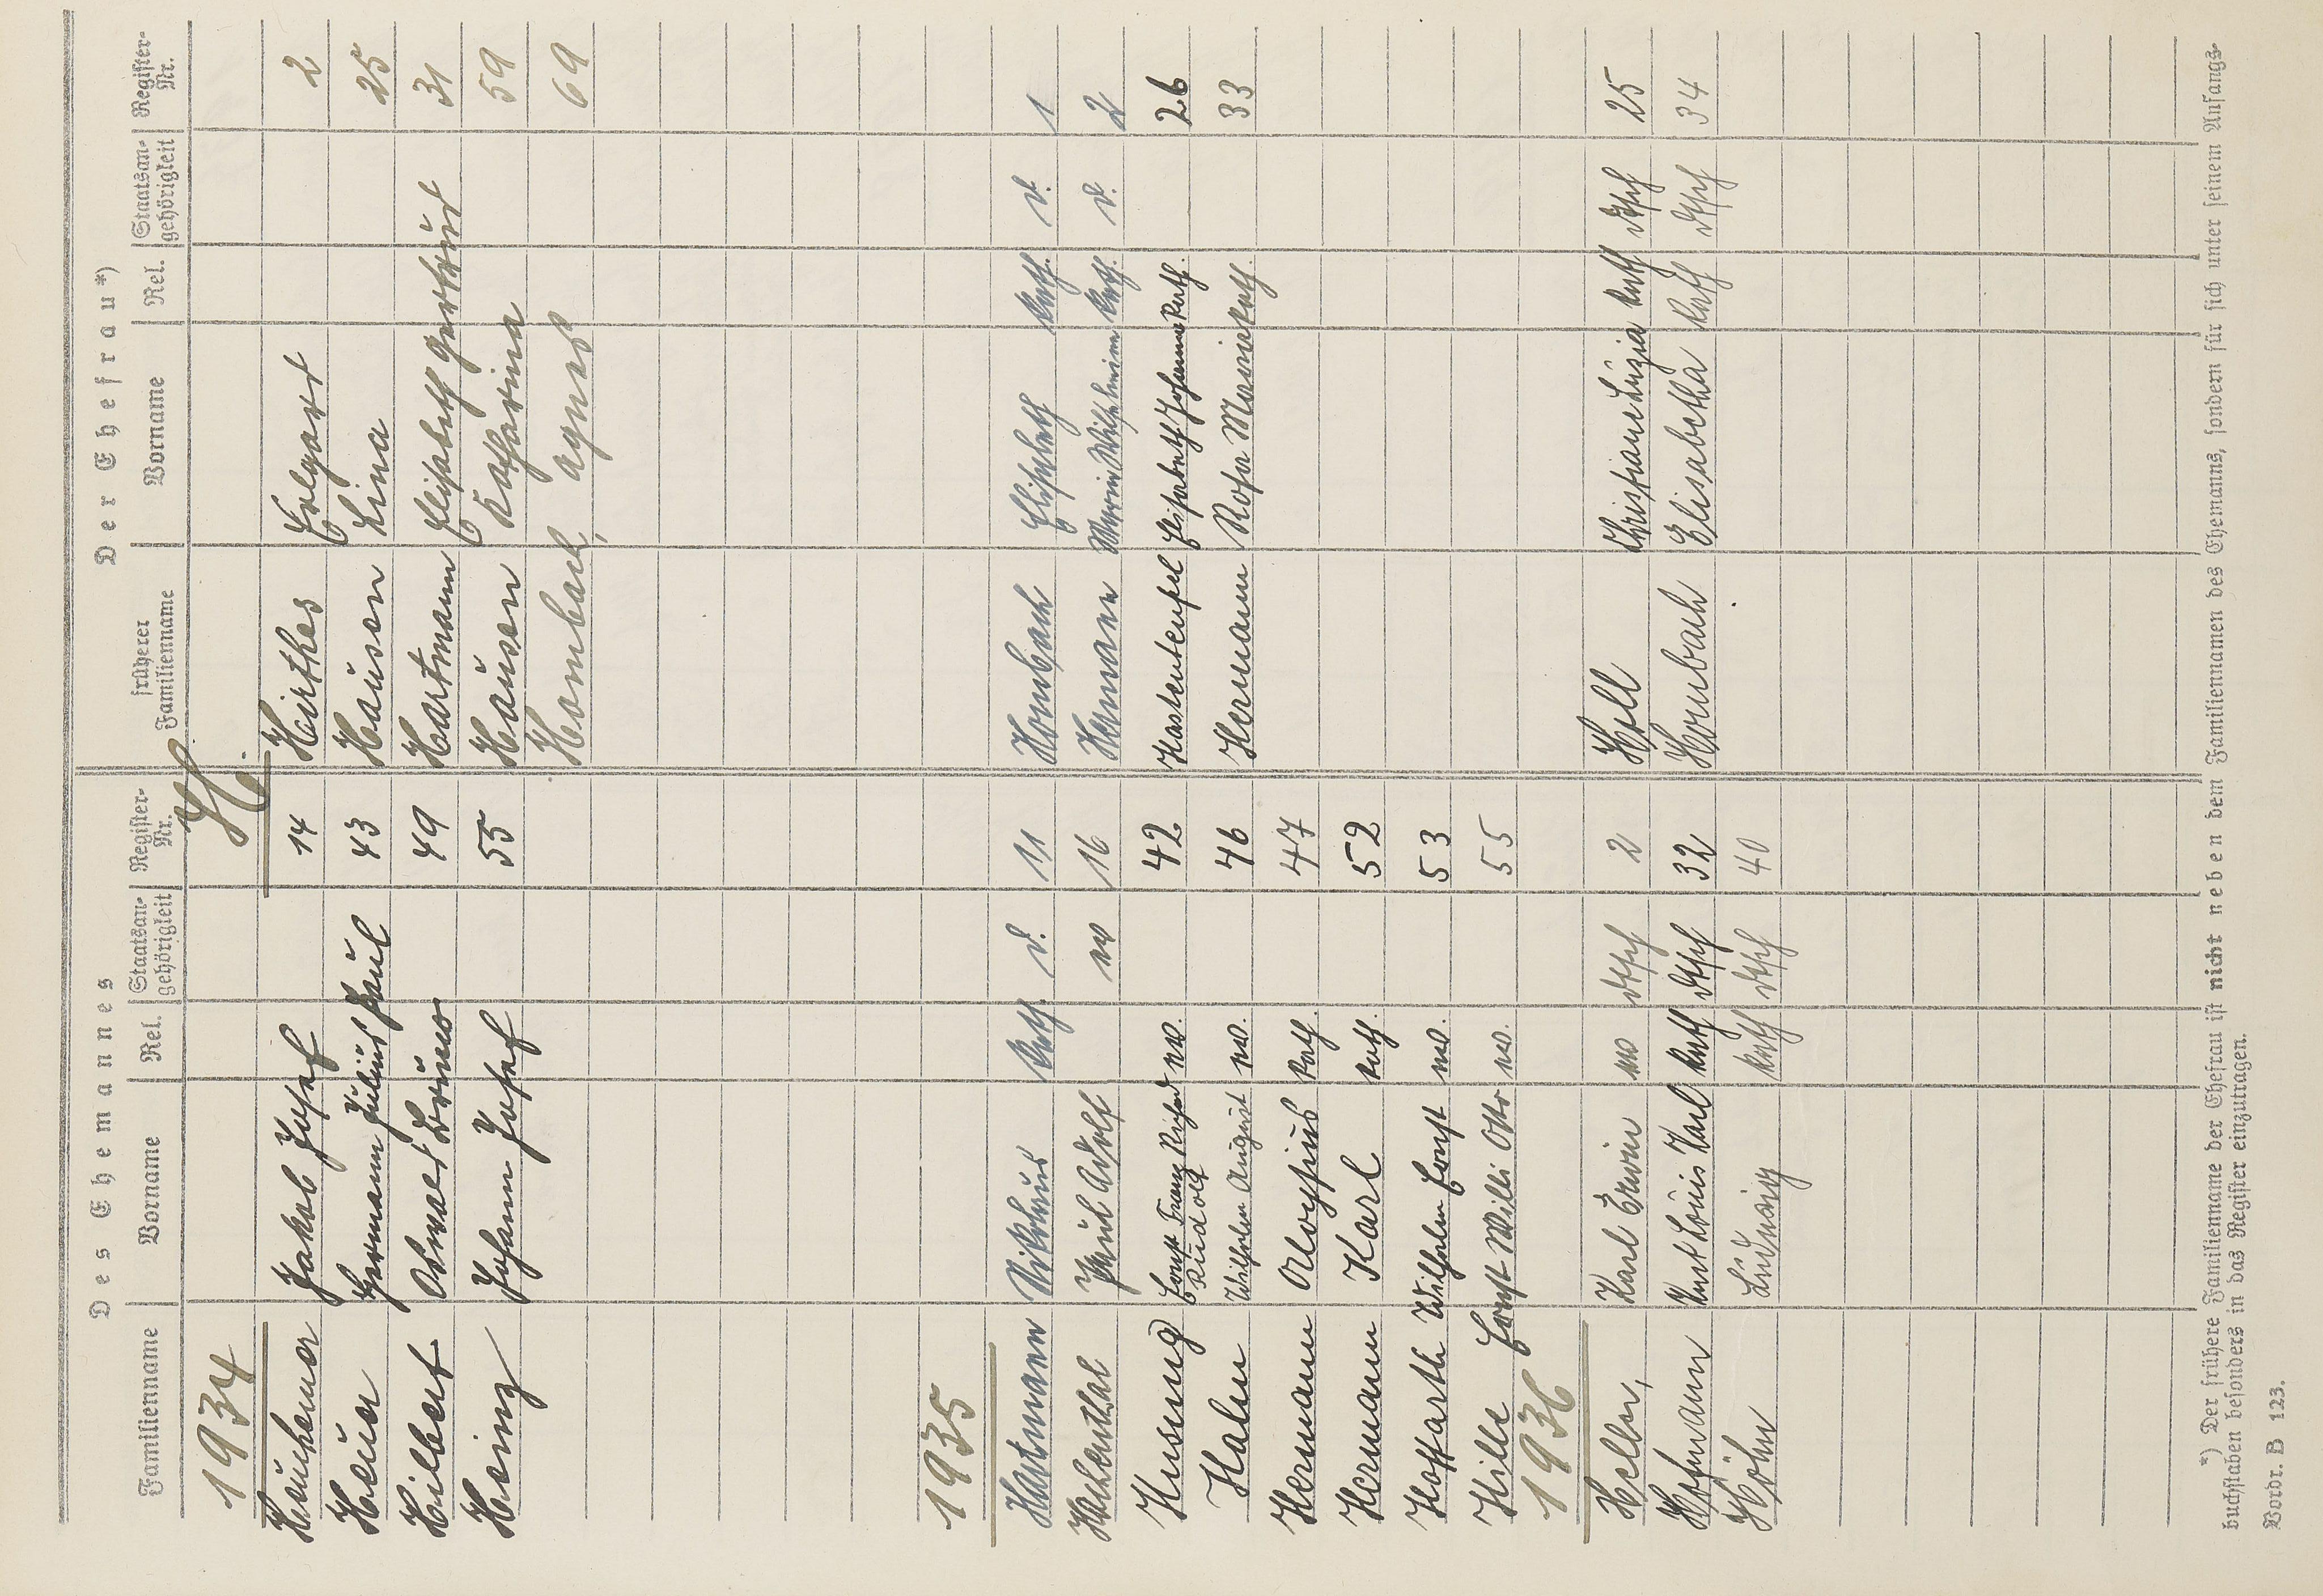 Des Ehemannes Der Ehefrau*)
Familienname Vorname Rel. Staatsan- gehörigkeit Register- Nr. früherer Familienname Vorname Rel. Staatsan- gehörigkeit Register- Nr.
1934 H.
Heucher Jakob Josef 14 Heirthes Irlgart 2
Heuer Hermann Julius Paul 43 Hausen Lina 25
Hilbert Oswald Bruno 49 Hartmann Elisabeth Gertrud 31
Heinz Johann Josef 55 Hausen Katharina 59
Hombach, Agnes 69
1935
Hartmann Nikolaus kath. d. 11 Hombach Elisabeth kath. d. 1
Hachenthal Paul Adolf ev 16 Hermann Maria Wilhelmine kath. d. 2
Ernst Franz Richard Rudolf ev. 42 Hasenteufel Elisabeth Johanna kath. 26
Hahn Wilhelm August ev. 46 Hermann Rosa Maria kath. 33
Hermann Aloysius kath. 47
Hermann Karl kath. 52
Hoffarth Wilhelm Ernst ev. 53
Hille Horst Willi Otto ev. 55
1936
Heller, Karl Erwin ev dtsch 2 Holl Christiane Luzia kath dtsch 25
Hofmann Kurt Louis Karl kath dtsch 32 Hornbach Elisabetha kath dtsch 34
Höhn Ludwig kath dtsch 40
*) Der frühere Familienname der Ehefrau ist nicht neben dem Familiennamen des Ehemanns, sondern für sich unter seinem Anfangs-
buchstaben besonders in das Register einzutragen.
Vordr. B 123.